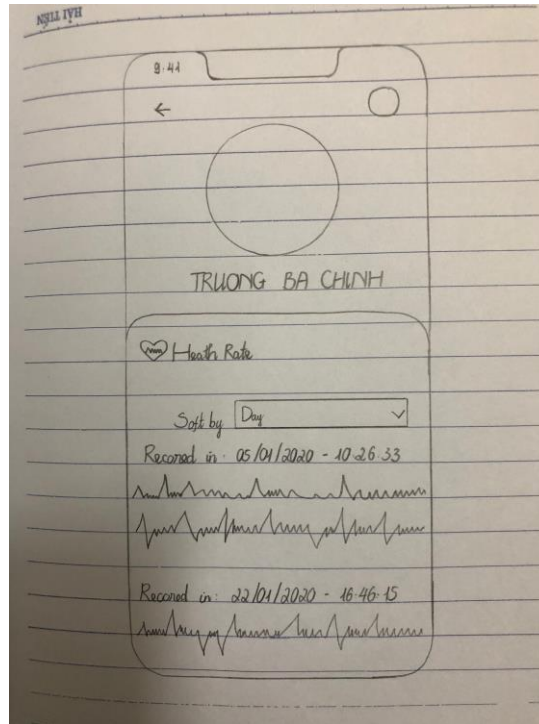 HẢI TIẾN
9:41
TRUONG BA CHINH
Heath Rate
Soft by Day
Recored in: 05/01/2020 - 10:26:33
Recored in: 22/01/2020 - 16:46:15